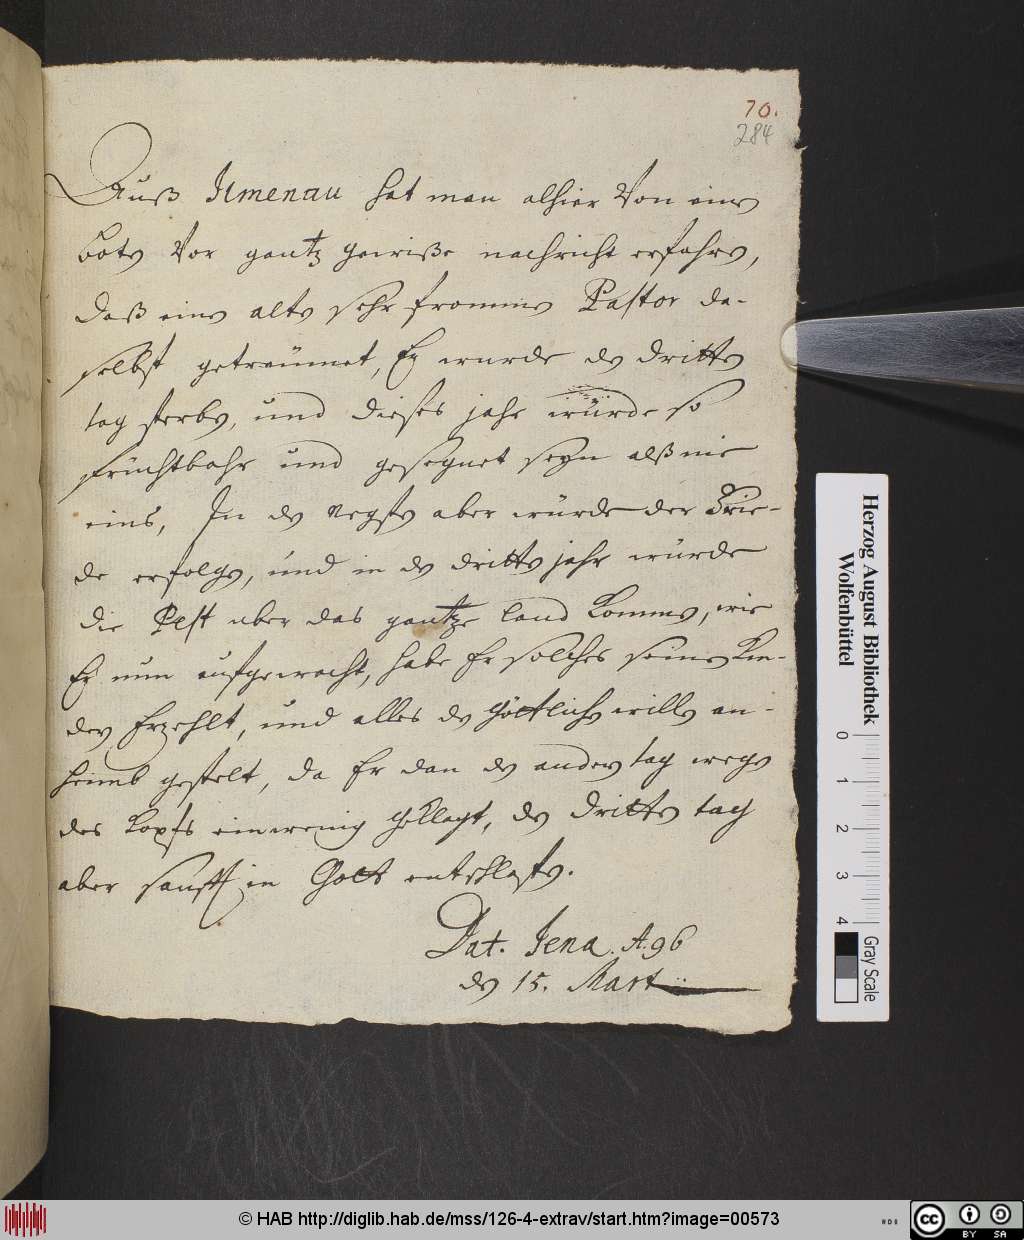 70.
284
Auß Ilmenau hat man alhier Von einen
boten Vor gantz gewiße nachricht erfahren,
daß einen alten sehr frommen Pastor da-
selbst getreümet, Er würde den dritten
tag sterben, und dieses jahr würde so
früchtbahr und gesegnet seyn alß nie
eins, In den negsten aber würde der Frie-
de erfolgen, und in den dritten jahr würde
die Pest uber das gantze land kommen, wie
Er nun aufgewacht, habe Er solches seinen Kin-
dern Erzehlt, und alles den Göttlichen willen an-
heimb gestelt, da Er dan den andern tag wegen
des kopfs ein wenig geklagt, den dritten tag
aber sanfft in Gott entschlaffen.
Dat. Jena. A. 96
den 15. Martii
Herzog August Bibliothek
Wolfenbüttel
0 1 2 3 4
Gray Scale
© HAB http://diglib.hab.de/mss/126-4-extrav/start.htm?image=00573
cc BY SA